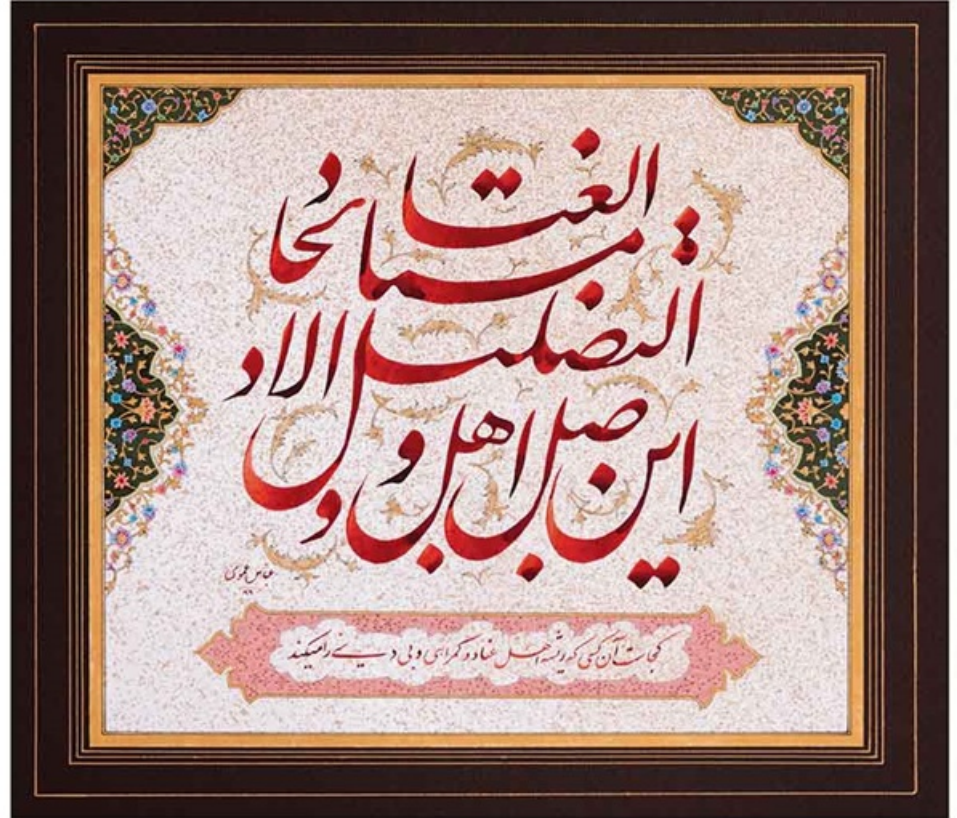 این مستاصل اهل العناد و التضلیل و الالحاد
کجاست آن کسی که ریشه اهل عناد و گمراهی و بی دینی را میکند